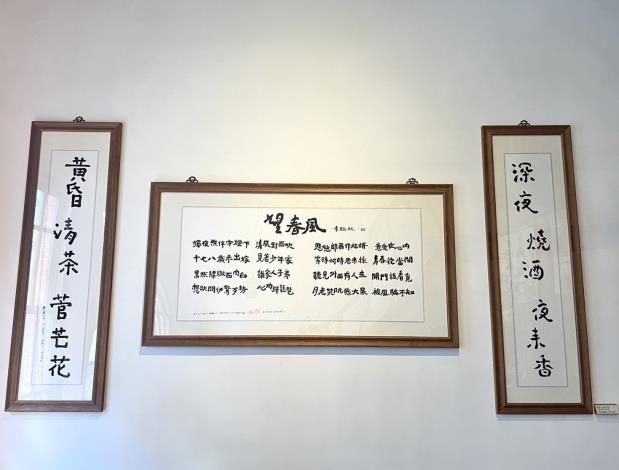 黃昏 清茶 菅芒花
望春風
李臨秋 詞
獨夜無伴守燈下 清風對面吹
十七八歲未出嫁 見著少年家
果然標緻面肉白 誰家人子弟
想欲問伊驚歹勢 心內彈琵琶
郎君作尪婿 意愛在心內
等待何時君來採 青春花當開
聽見外面有人來 開門該看覓
月老笑阮憨大呆 被風騙不知
深夜 燒酒 夜來香